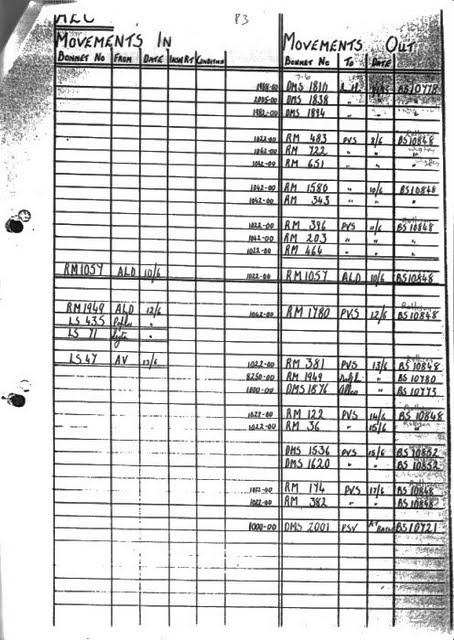 AEC P3
MOVEMENTS IN MOVEMENTS OUT
BONNET No FROM DATE INSW RT CONDITION BONNET No TO DATE
7-6
DMS 1810 BS10778
2005-00 DMS 1838 " "
1982-00 DMS 1894 " "
1022-00 RM 483 PVS 8/6 BS10848
1042-00 RM 722 " "
1042-00 RM 651 " "
1042-00 RM 1580 " 10/6 BS10848
1042-00 RM 343 " " "
1022-00 RM 396 PVS 11/6 BS10848
1042-00 RM 203 " "
1022-00 RM 464 " "
RM1057 ALD 10/6 1022-00 RM1057 ALD 10/6 BS10848
RM1949 ALD 12/6 1042-00 RM 1780 PVS 12/6 BS10848
LS 435 "
LS 71 "
LS47 AV 13/6 1022-00 RM 381 PVS 13/6 BS10848
8250-00 RM 1949 " BS10780
1000-00 DMS1876 " BS10773
1022-00 RM 122 PVS 14/6 BS10848
1022-00 RM 36 " 15/6
DMS 1536 PVS 15/6 BS10852
DMS 1620 " " BS10852
1022-00 RM 174 PVS 17/6 BS10848
1022-00 RM 382 " " BS10848
1000-00 DMS 2001 PSV BS10721